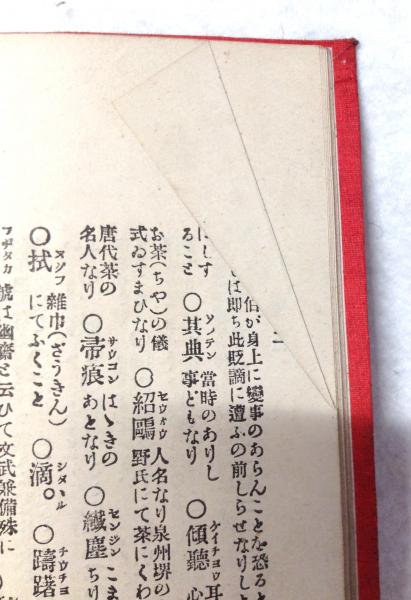 二
伯が身上に變事のあらんことを恐ると
は即ち此貶謫に遭ふの前しらせなりしと
にしす
ること
○其典
ソノテン
當時のありし
事どもなり
○傾聽
ケイチヨウ
耳
心
お茶(ちや)の儀
式ゐすまひなり
○紹鷗
セウオウ
人名なり泉州堺の
野氏にて茶にくわ
唐代茶の
名人なり
○帚痕
サウコン
はゝきの
あとなり
○纖塵
センジン
こま
ちり
○拭
ヌグフ
雜巾(ざうきん)
にてふくこと
○滴。
シタヽル
○躊躇
チウチヨ
フヂタカ
號は幽齋と云ひて文武兼備殊に